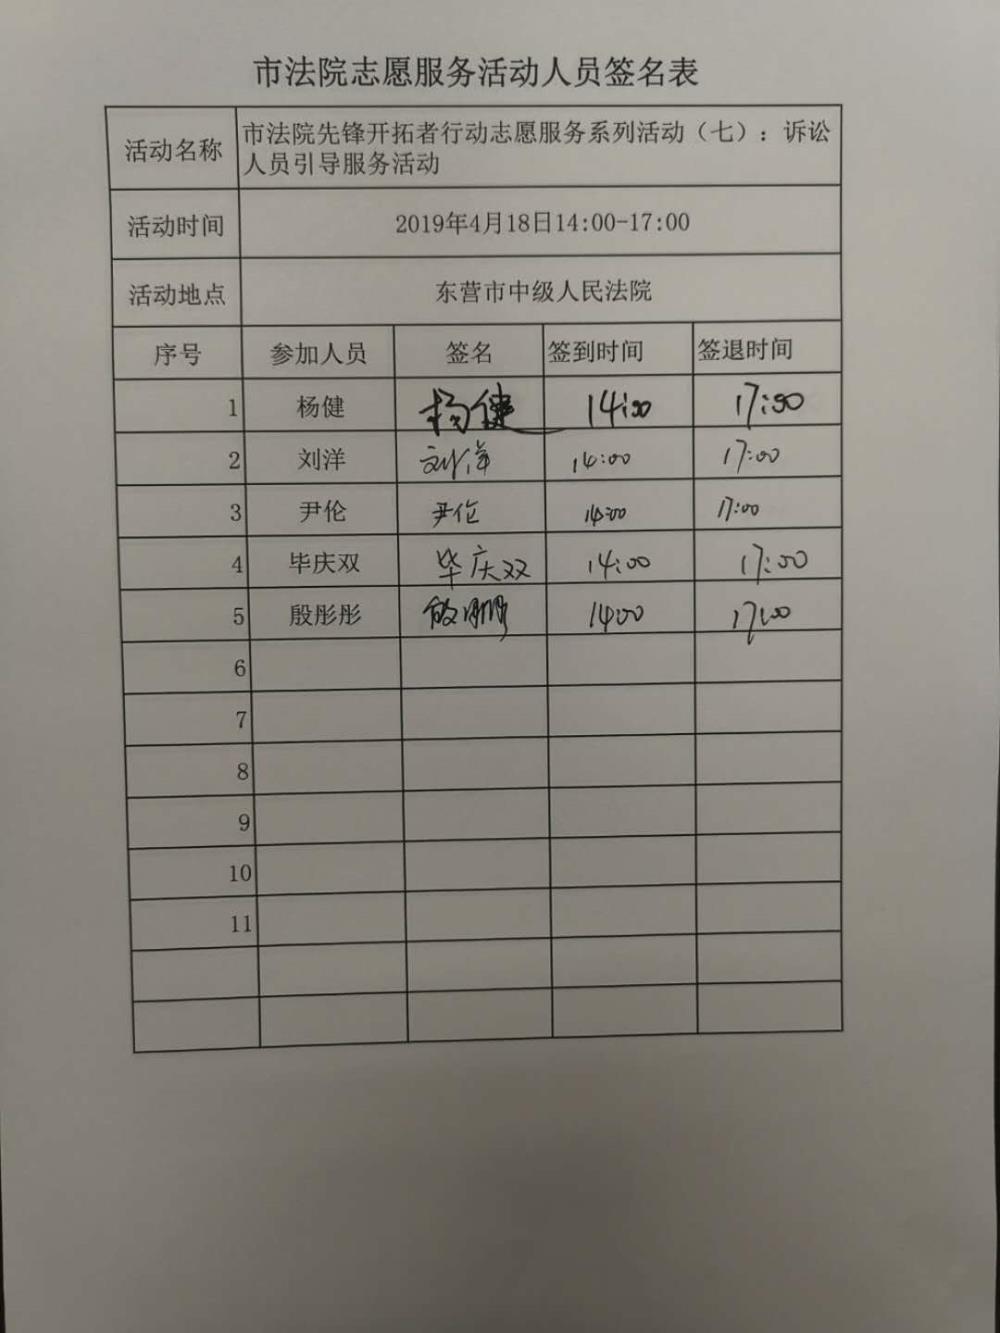 市法院志愿服务活动人员签名表
活动名称 市法院先锋开拓者行动志愿服务系列活动（七）：诉讼
人员引导服务活动
活动时间 2019年4月18日14:00-17:00
活动地点 东营市中级人民法院
序号 参加人员 签名 签到时间 签退时间
1 杨健 杨健 14:00 17:00
2 刘洋 刘洋 14:00 17:00
3 尹伦 尹伦 14:00 17:00
4 毕庆双 毕庆双 14:00 17:00
5 殷彤彤 殷彤彤 14:00 17:00
6
7
8
9
10
11